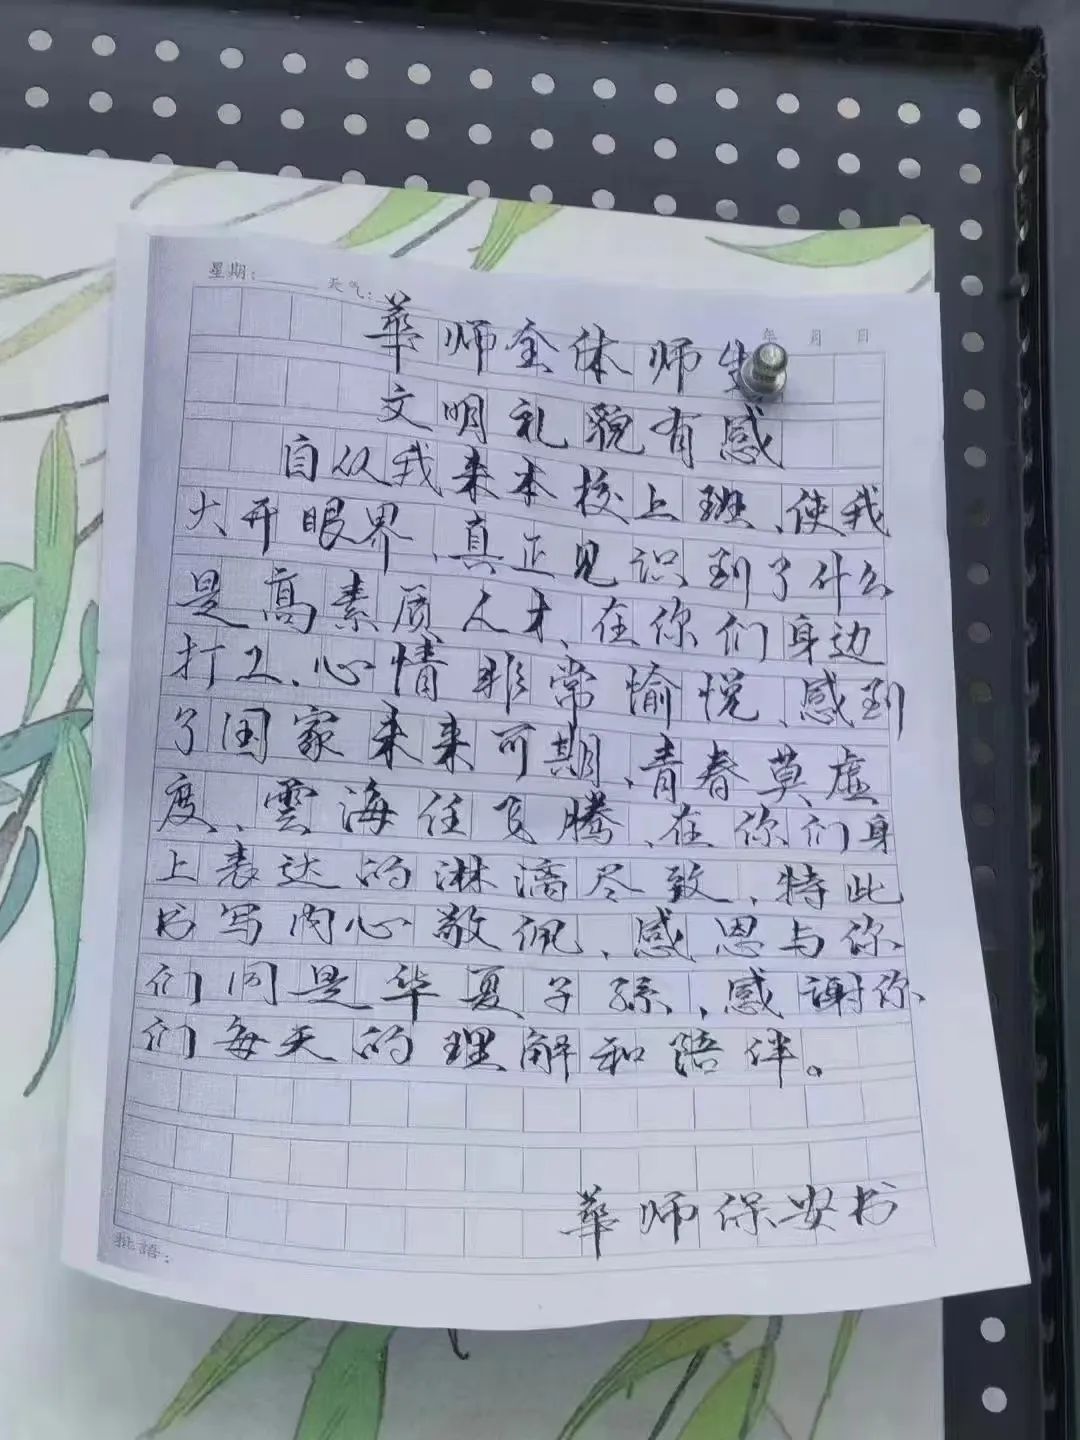 星期: 天气:
年 月 日
華师全体师生
文明礼貌有感
自从我来本校上班、使我
大开眼界、真正见识到了什么
是高素质人才、在你们身边
打工、心情非常愉悦、感到
了国家未来可期、青春莫虚
度、雲海任飞腾、在你们身
上表达的淋漓尽致、特此
书写内心敬佩、感恩与你
们同是华夏子孫、感谢你
们每天的理解和陪伴。
華师保安书
批語: